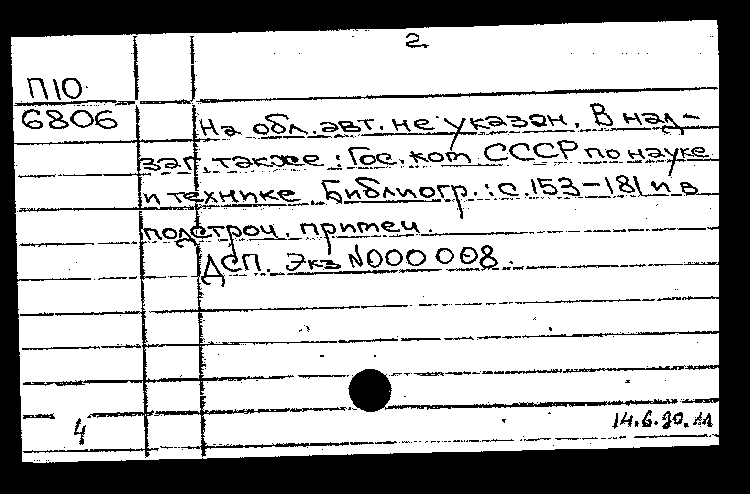 2
П10
6806
На обл. авт. не указан. В над-
заг. также: Гос. ком. СССР по науке
и технике. Библиогр.: с. 153-181 и в
подстроч. примеч.
ДСП. Экз N000 008.
4
14.6.90.